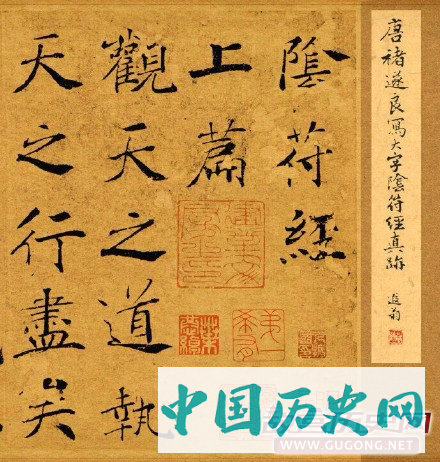 唐褚遂良寫大字陰符經真跡
陰符經
上篇
觀天之道執
天之行盡矣
中国历史网
WWW.GUGONG.NET